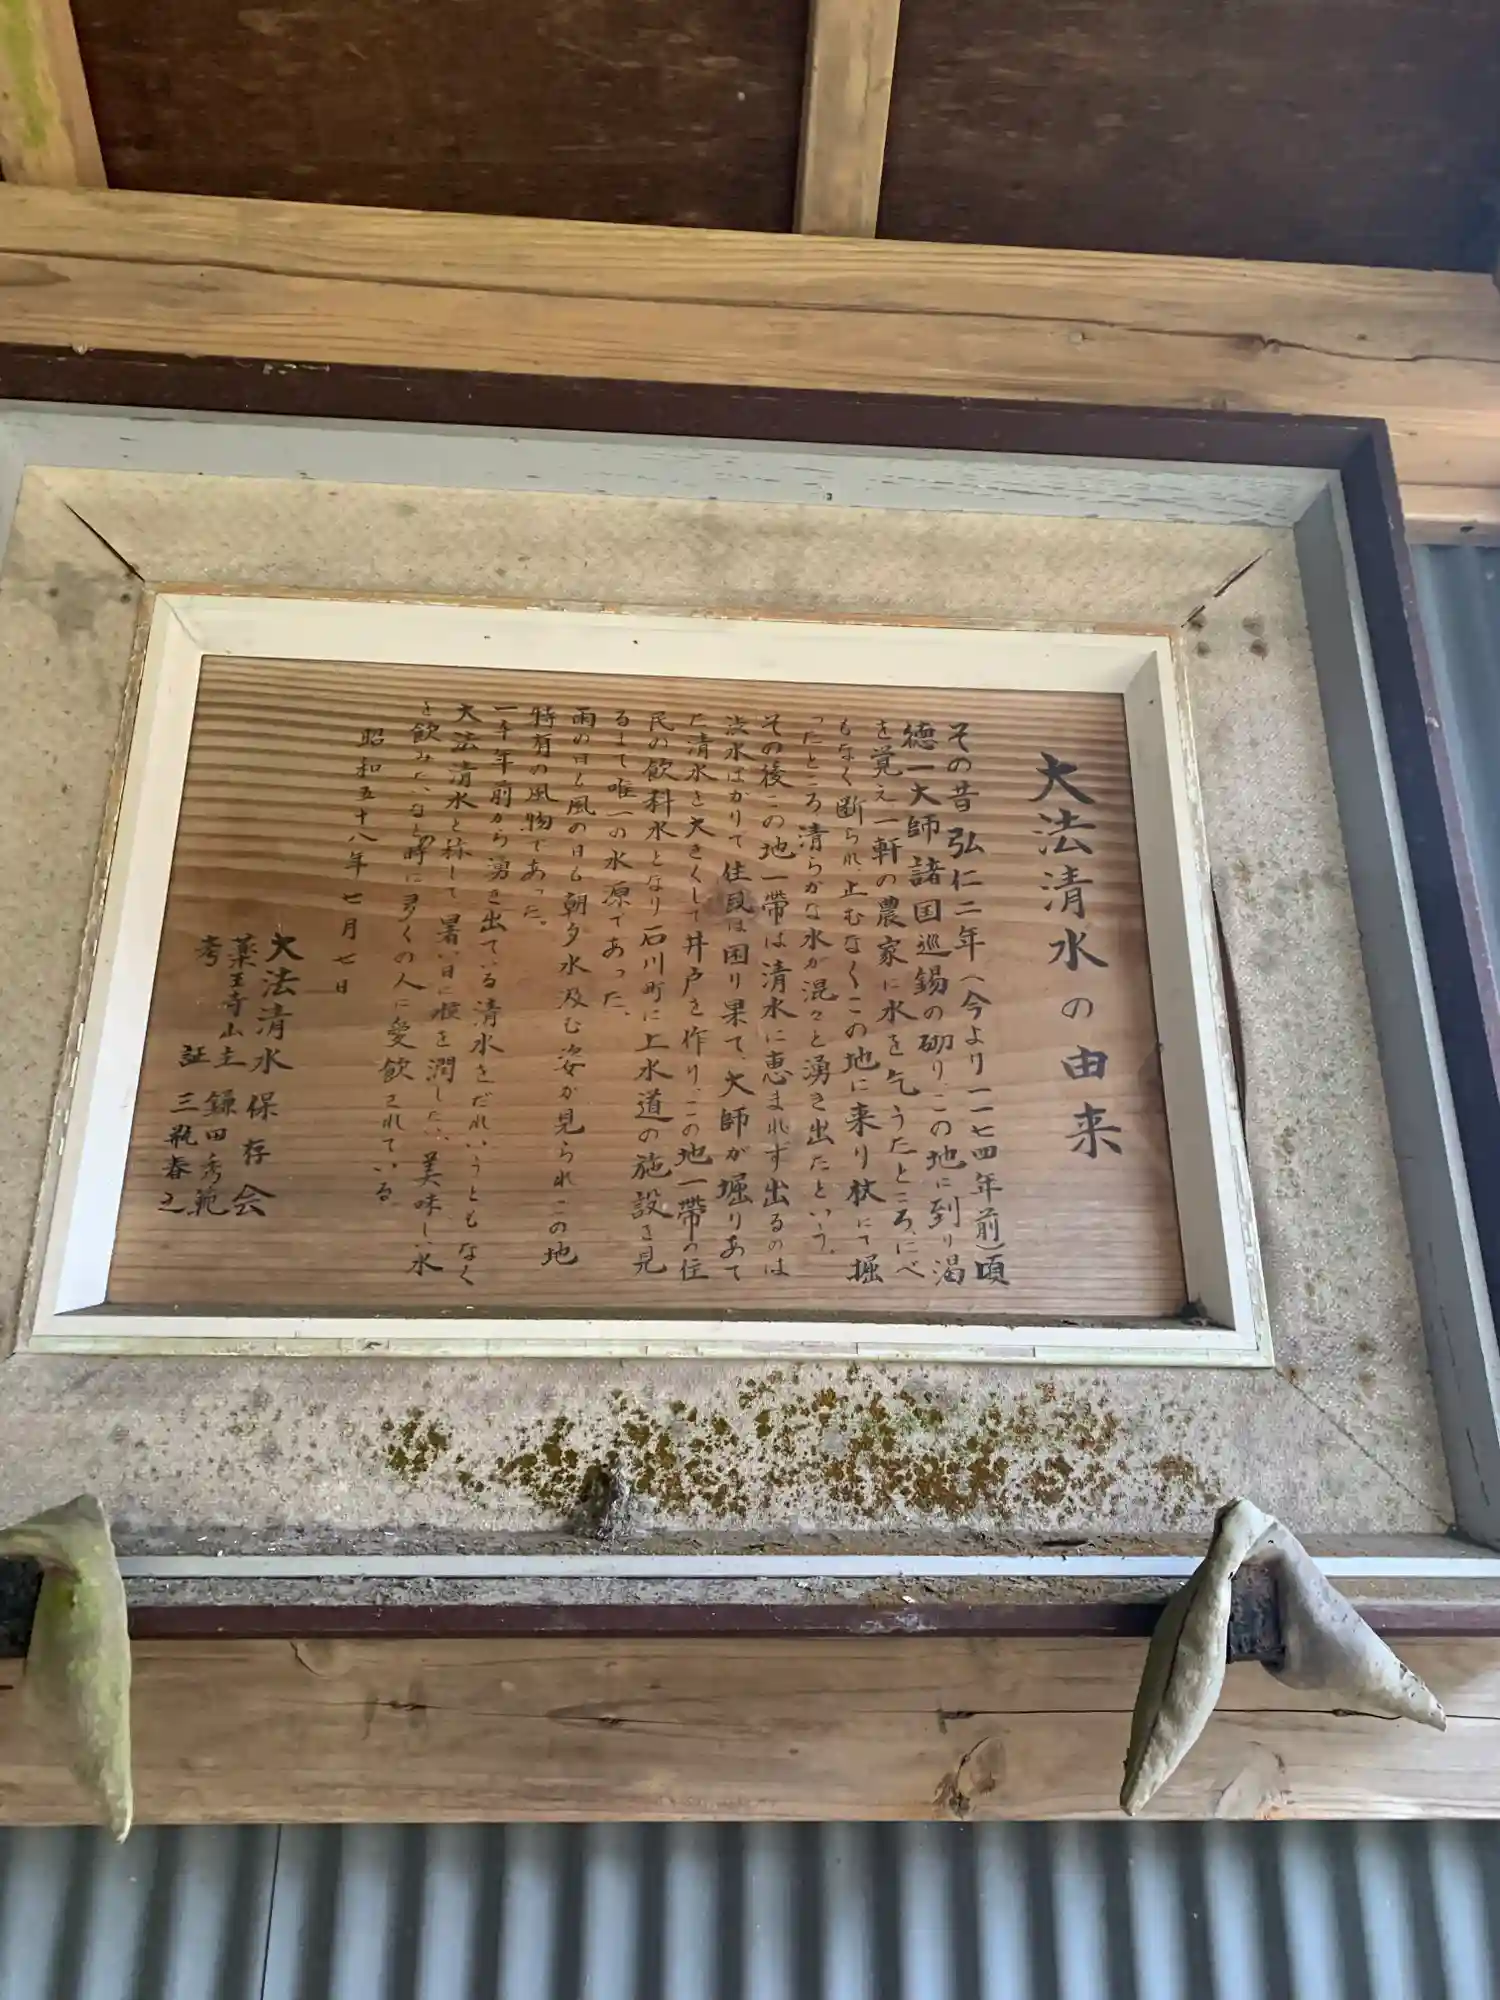 大法清水の由来
その昔弘仁二年（今より一一七四年前）頃
徳一大師諸国巡錫の砌り、この地に到り渇
を覚え一軒の農家に水を乞うたところ、にべ
もなく断られ、止むなくこの地に来り杖にて掘
ったところ清らかな水が混々と湧き出たという。
その後この地一帯は清水に恵まれず出るのは
渋水ばかりで住民は困り果て、大師が掘りあて
た清水を大きくして井戸を作り、この地一帯の住
民の飲料水となり石川町に上水道の施設を見
るまで唯一の水源であった、
雨の日も風の日も朝夕水汲む姿が見られこの地
特有の風物であった。
一千年前から湧き出ている清水をだれいうともなく
大法清水と称して暑い日に喉を潤したい、美味しい水
を飲みたいなどの時に多くの人に愛飲されている
昭和五十八年七月七日
大法清水保存会
薬王寺山主 鎌田秀範
考証 三瓶春之